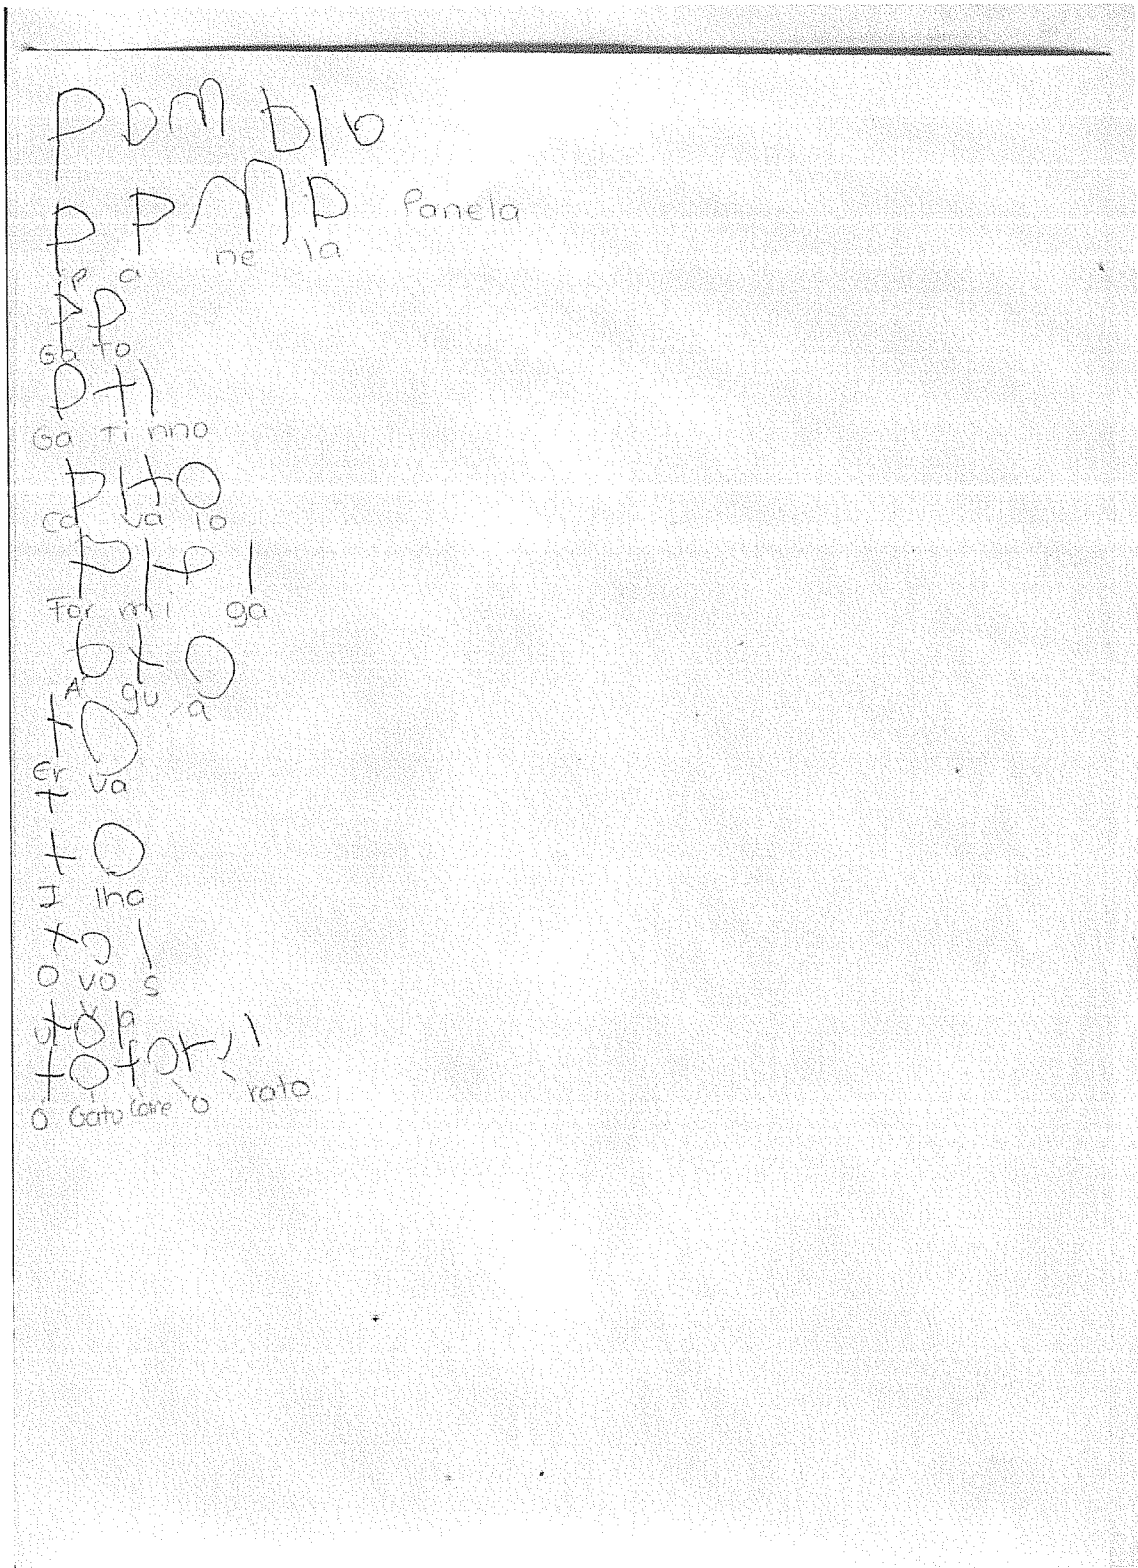 P b m b l b
P P M P Panela
P a ne la
P P
Ga To
P t l
Ga Ti nho
P l t O
Ca va lo
P l t P l
For mi ga
b t O
A gu a
t O
Er va
t
t O
I lha
t O l
O vo s
U V a
t O t O t l l
O Gato Come o rato